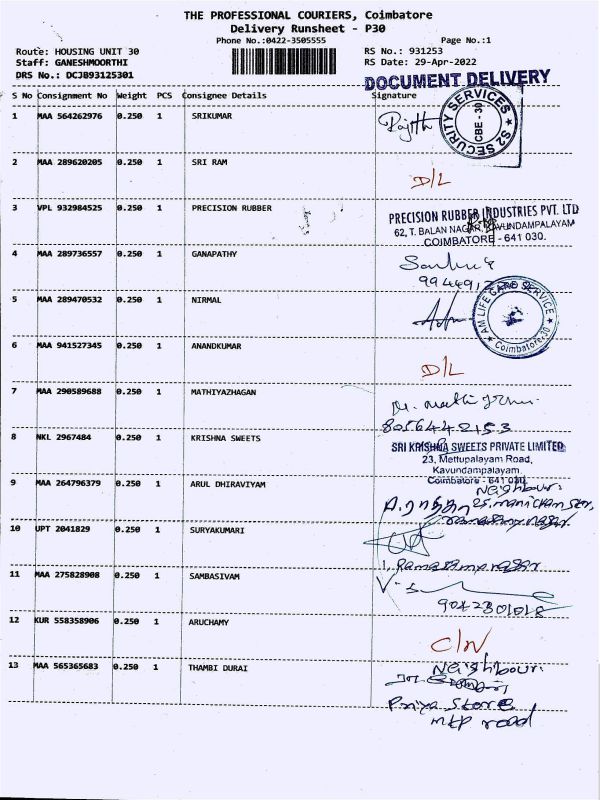 THE PROFESSIONAL COURIERS, Coimbatore
Delivery Runsheet - P30
Phone No.:0422-3505555
Page No.:1
Route: HOUSING UNIT 30
RS No.: 931253
Staff: GANESHMOORTHI
RS Date: 29-Apr-2022
DRS No.: DCJB93125301
DOCUMENT DELIVERY
S No Consignment No Weight PCS Consignee Details Signature
1 MAA 564262976 0.250 1 SRIKUMAR
S2 SECURITY SERVICES CBE - 30
2 MAA 289620205 0.250 1 SRI RAM D/L
3 VPL 932984525 0.250 1 PRECISION RUBBER
PRECISION RUBBER INDUSTRIES PVT. LTD
62, T. BALAN NAGAR, KAVUNDAMPALAYAM
COIMBATORE - 641 030.
4 MAA 289736557 0.250 1 GANAPATHY
5 MAA 289470532 0.250 1 NIRMAL
Coimbatore-30
6 MAA 941527345 0.250 1 ANANDKUMAR D/L
7 MAA 290589688 0.250 1 MATHIYAZHAGAN
8056442153
8 NKL 2967484 0.250 1 KRISHNA SWEETS
SRI KRISHNA SWEETS PRIVATE LIMITED
23, Mettupalayam Road,
Kavundampalayam
Coimbatore - 641 030.
9 MAA 264796379 0.250 1 ARUL DHIRAVIYAM
Neighbour:
10 UPT 2041829 0.250 1 SURYAKUMARI
11 MAA 275828908 0.250 1 SAMBASIVAM
9042301018
12 KUR 558358906 0.250 1 ARUCHAMY C/N
13 MAA 565365683 0.250 1 THAMBI DURAI
Neighbour:
Priya Store
mtp road